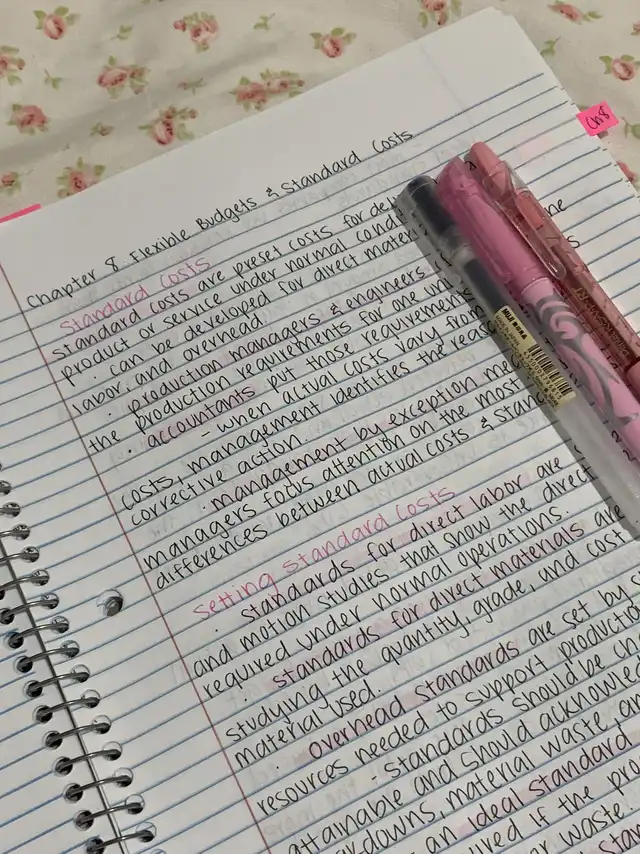 Ch8
Chapter 8 Flexible Budgets & Standard Costs
Standard Costs
standard costs are preset costs for
product or service under normal
the
· can be developed for direct
labor, and overhead.
· production managers & engineers
the production requirements for one
· accountants put those requirements
- when actual costs vary from
costs, management identifies the
corrective action.
· management by exception
managers focus attention on the most
differences between actual costs &
Setting standard costs
· standards for direct labor are
and motion studies that show the direct
required under normal operations.
· standards for direct materials are
studying the quantity, grade, and cost
material used.
· overhead standards are set by
resources needed to support
- standards should be
attainable and should
material waste,
an ideal standard
if the
waste
MUJI